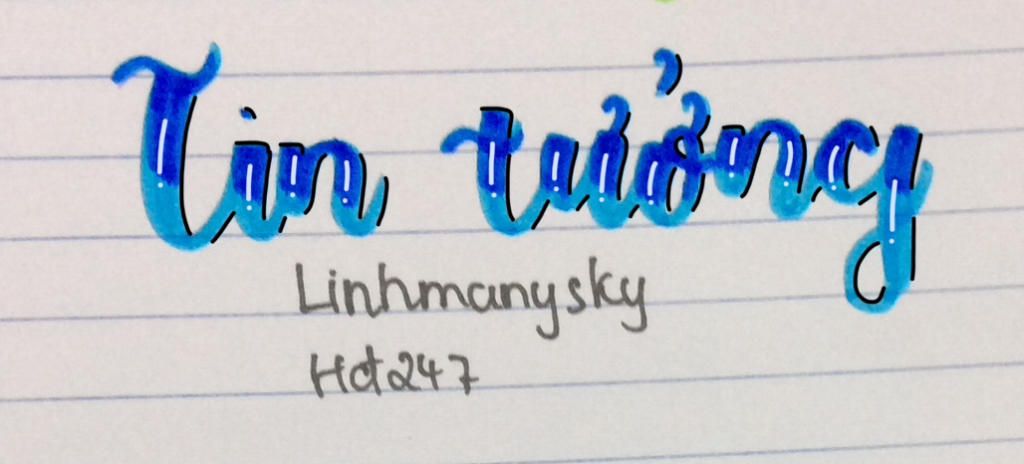 Tin tưởng
Linhmanysky
Hdt247